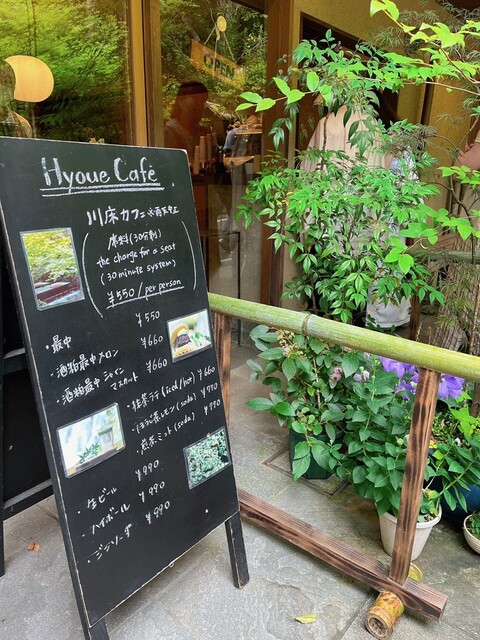 OPEN
Hyoue Café
川床カフェ ※雨天中止
席料(30分制)
the charge for a seat
(30 minute system)
¥550/per person
・最中 ¥550
・酒粕最中メロン ¥660
・酒粕最中シャインマスカット ¥660
・抹茶ラテ(iced/hot) ¥660
・ほうじ茶レモン(soda) ¥770
・煎茶ミント(soda) ¥770
・生ビール ¥990
・ハイボール ¥990
・ジンソーダ ¥990